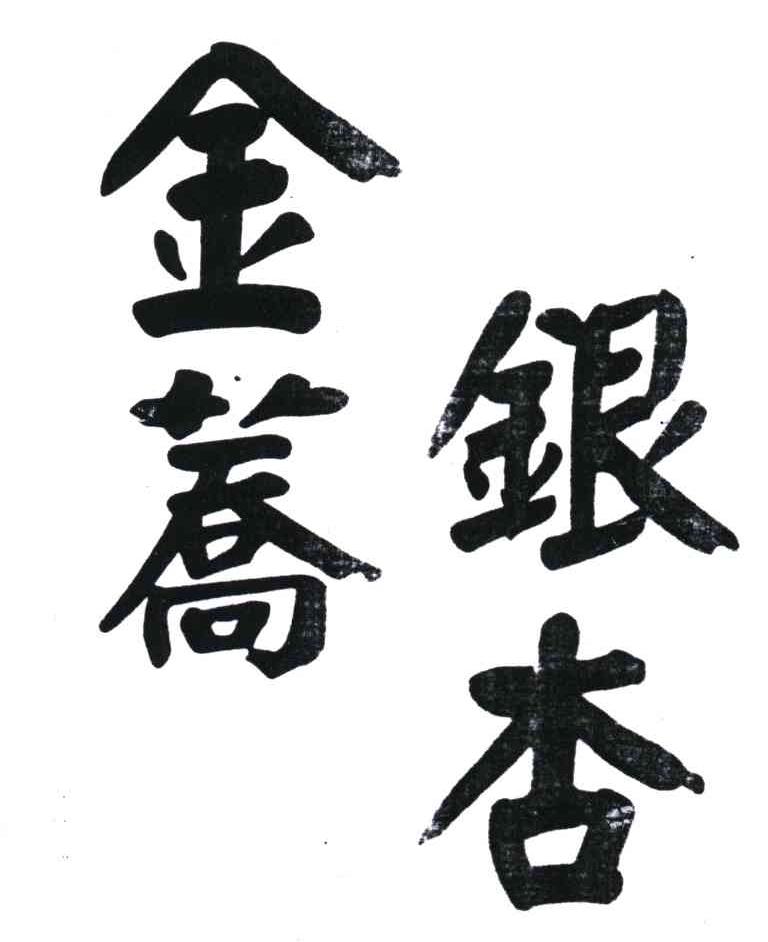 銀杏
金蕎